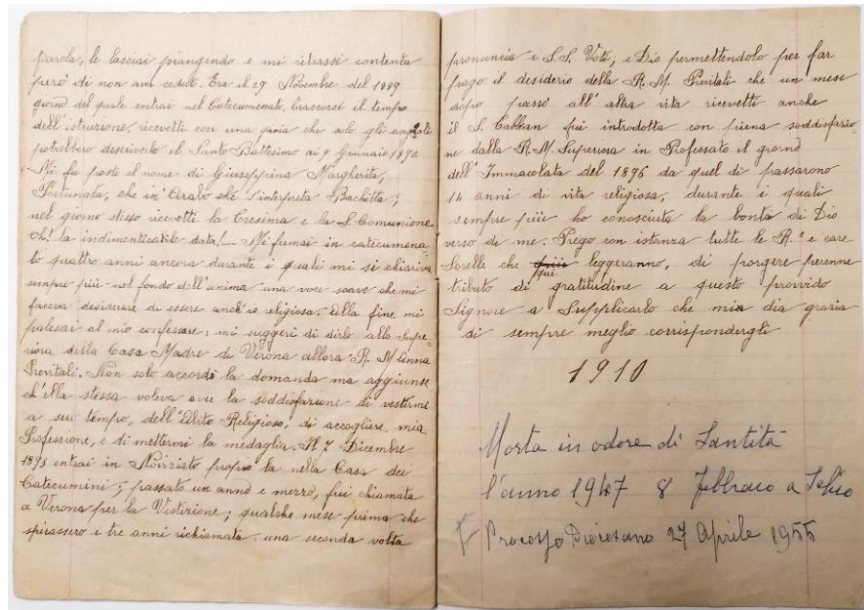 parola; le lasciai piangendo e mi ritrassi contenta
però di non aver ceduto. Era il 29 Novembre del 1889
giorno del quale entrai nel Catecumenato. Trascorsi il tempo
dell'istruzione, ricevetti con una gioia che solo gli angioli
potrebbero descrivere il Santo Battesimo ai 9 Gennaio 1890.
Mi fu posto il nome di Giuseppina Margherita,
Fortunata, che in Arabo che s'interpreta Bachitta;
nel giorno stesso ricevetti la Cresima e la S. Comunione.
Oh! la indimenticabile data!... Mi fermai in catecumena
to quattro anni ancora durante i quali mi si chiariva
sempre più nel fondo dell'anima una voce soave che mi
faceva desiderare di essere anch'io religiosa. Alla fine mi
palesai al mio confessore; mi suggerì di dirlo alla Supe
riora della Casa Madre di Verona allora R. M. Anna
Previtali. Non solo accordò la domanda ma aggiunse
ch'ella stessa voleva aver la soddisfazione di vestirmi
a suo tempo, dell'Abito Religioso, di accogliere mia
Professione, e di mettermi la medaglia. Il 7 Dicembre
1893 entrai in Noviziato proprio la nella Casa dei
Catecumini; passato un anno e mezzo, fui chiamata
a Verona per la Vestizione; qualche mese prima che
spirassero i tre anni richiamata una seconda volta
pronuncia i S.S. Voti, e Dio permettendolo per far
pago il desiderio della R. M. Previtali che un mese
dopo passò all'altra vita ricevetti anche
il S. fui introdotta con piena soddisfazio
ne dalla R. M. Superiora in Professato il giorno
dell'Immacolata del 1896 da quel dì passarono
14 anni di vita religiosa, durante i quali
sempre più ho conosciuta la bontà di Dio
verso di me. Prego con istanza tutte le R.e e care
Sorelle che qui leggeranno, di porgere perenne
tributo di gratitudine a questo provvido
Signore a Supplicarlo che mia dia grazia
di sempre meglio corrispondergli
1910
Morta in odore di Santità
l'anno 1947 8 Febbraio a Schio
Processo Diocesano 27 Aprile 1955